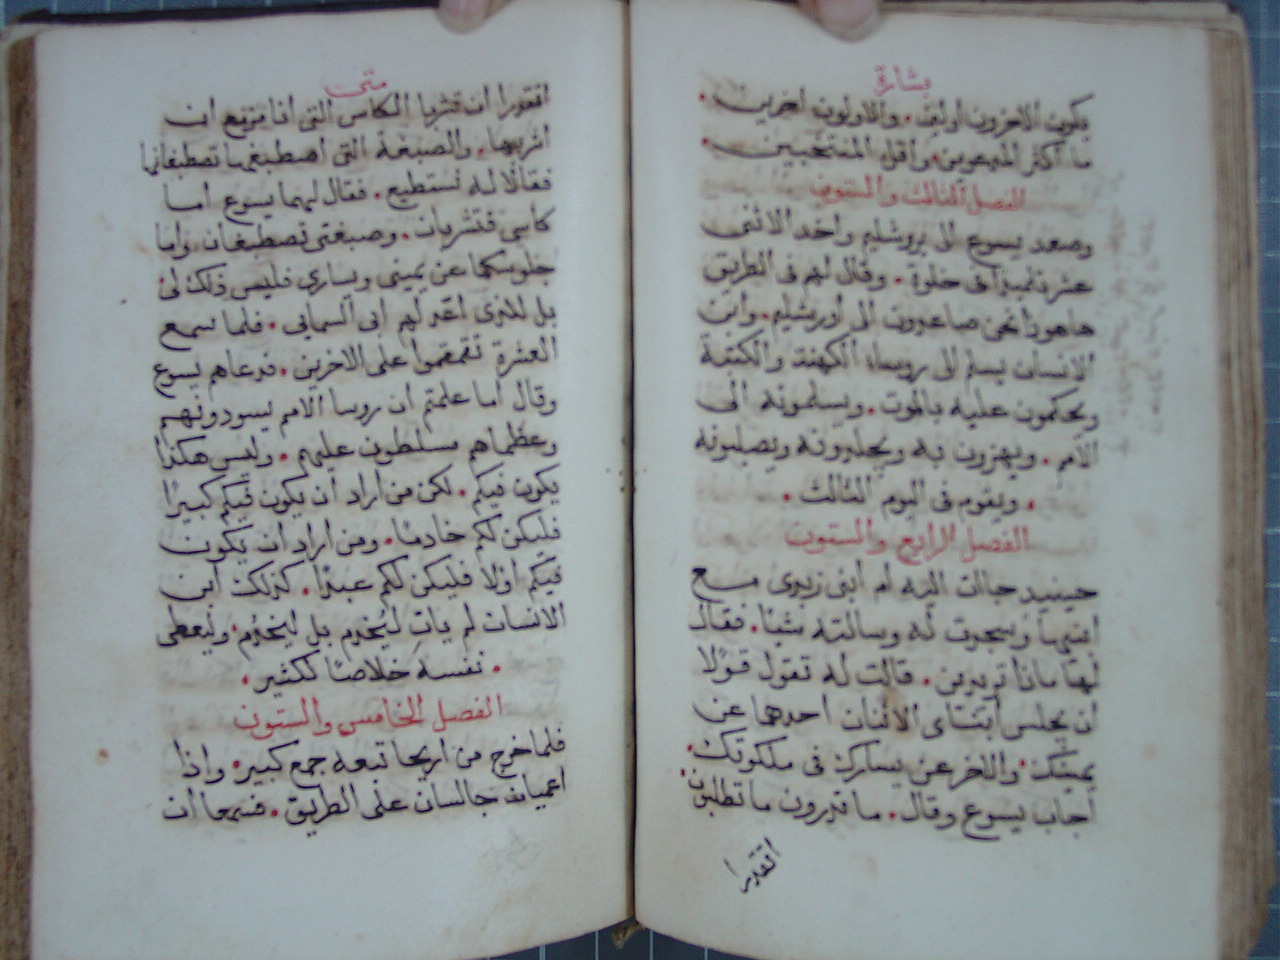 بشارة
يكون الاخرون اولين. والاولون اخرين.
ما اكثر المدعوين واقل المنتخبين.
الفصل الثالث والستون
وصعد يسوع الى يروشليم واخد الاثنى
عشر تلميذا فى خلوة. وقال لهم فى الطريق
هاهوذا نحن صاعدون الى اورشليم. وابن
الانسان يسلم الى روساء الكهنة والكتبة
ويحكمون عليه بالموت. ويسلمونه الى
الامم. ويهزون به ويجلدونه ويصلبونه
. ويقوم فى اليوم الثالث.
الفصل الرابع والستون
حينيد جاات اليه ام ابنى زبدى مع
ابنيها وسجدت له وسالته شيئا. فقال
لها ماذا تريدين. قالت له تقول قولا
ان يجلس ابنتاى الاثنان احدهما عن
يمينك. والاخر عن يسارك فى ملكوتك.
اجاب يسوع وقال. ما تدرون ما تطلبون.
اتقدرا
متى
اتقدرا ان تشربا الكاس التى انا مزمع ان
اشربها. والصبغة التى اصطبغها تصطبغانها
فقالا له نستطيع. فقال لهما يسوع اما
كاسى فتشربان. وصبغتى تصطبغان. واما
جلوسكما عن يمينى ويسارى فليس ذلك لى
بل للذى اعد لهم ابى السمانى. فلما سمع
العشرة تقمقموا على الاخرين. فدعاهم يسوع
وقال اما علمتم ان روسا الامم يسودونهم
وعظماهم مسلطون عليهم. وليس هكذا
يكون فيكم. لكن من اراد ان يكون فيكم كبيرا
فليكن لكم خادما. ومن اراد ان يكون
فيكم اولا فليكن لكم عبدا. كذلك ابن
الانسان لم يات ليخدم بل ليخدم. وليعطى
. نفسه خلاصا لكثير.
الفصل الخامس والستون
فلما خرج من اريحا تبعه جمع كبير. واذا
اعميان جالسان على الطريق. فسمعا ان